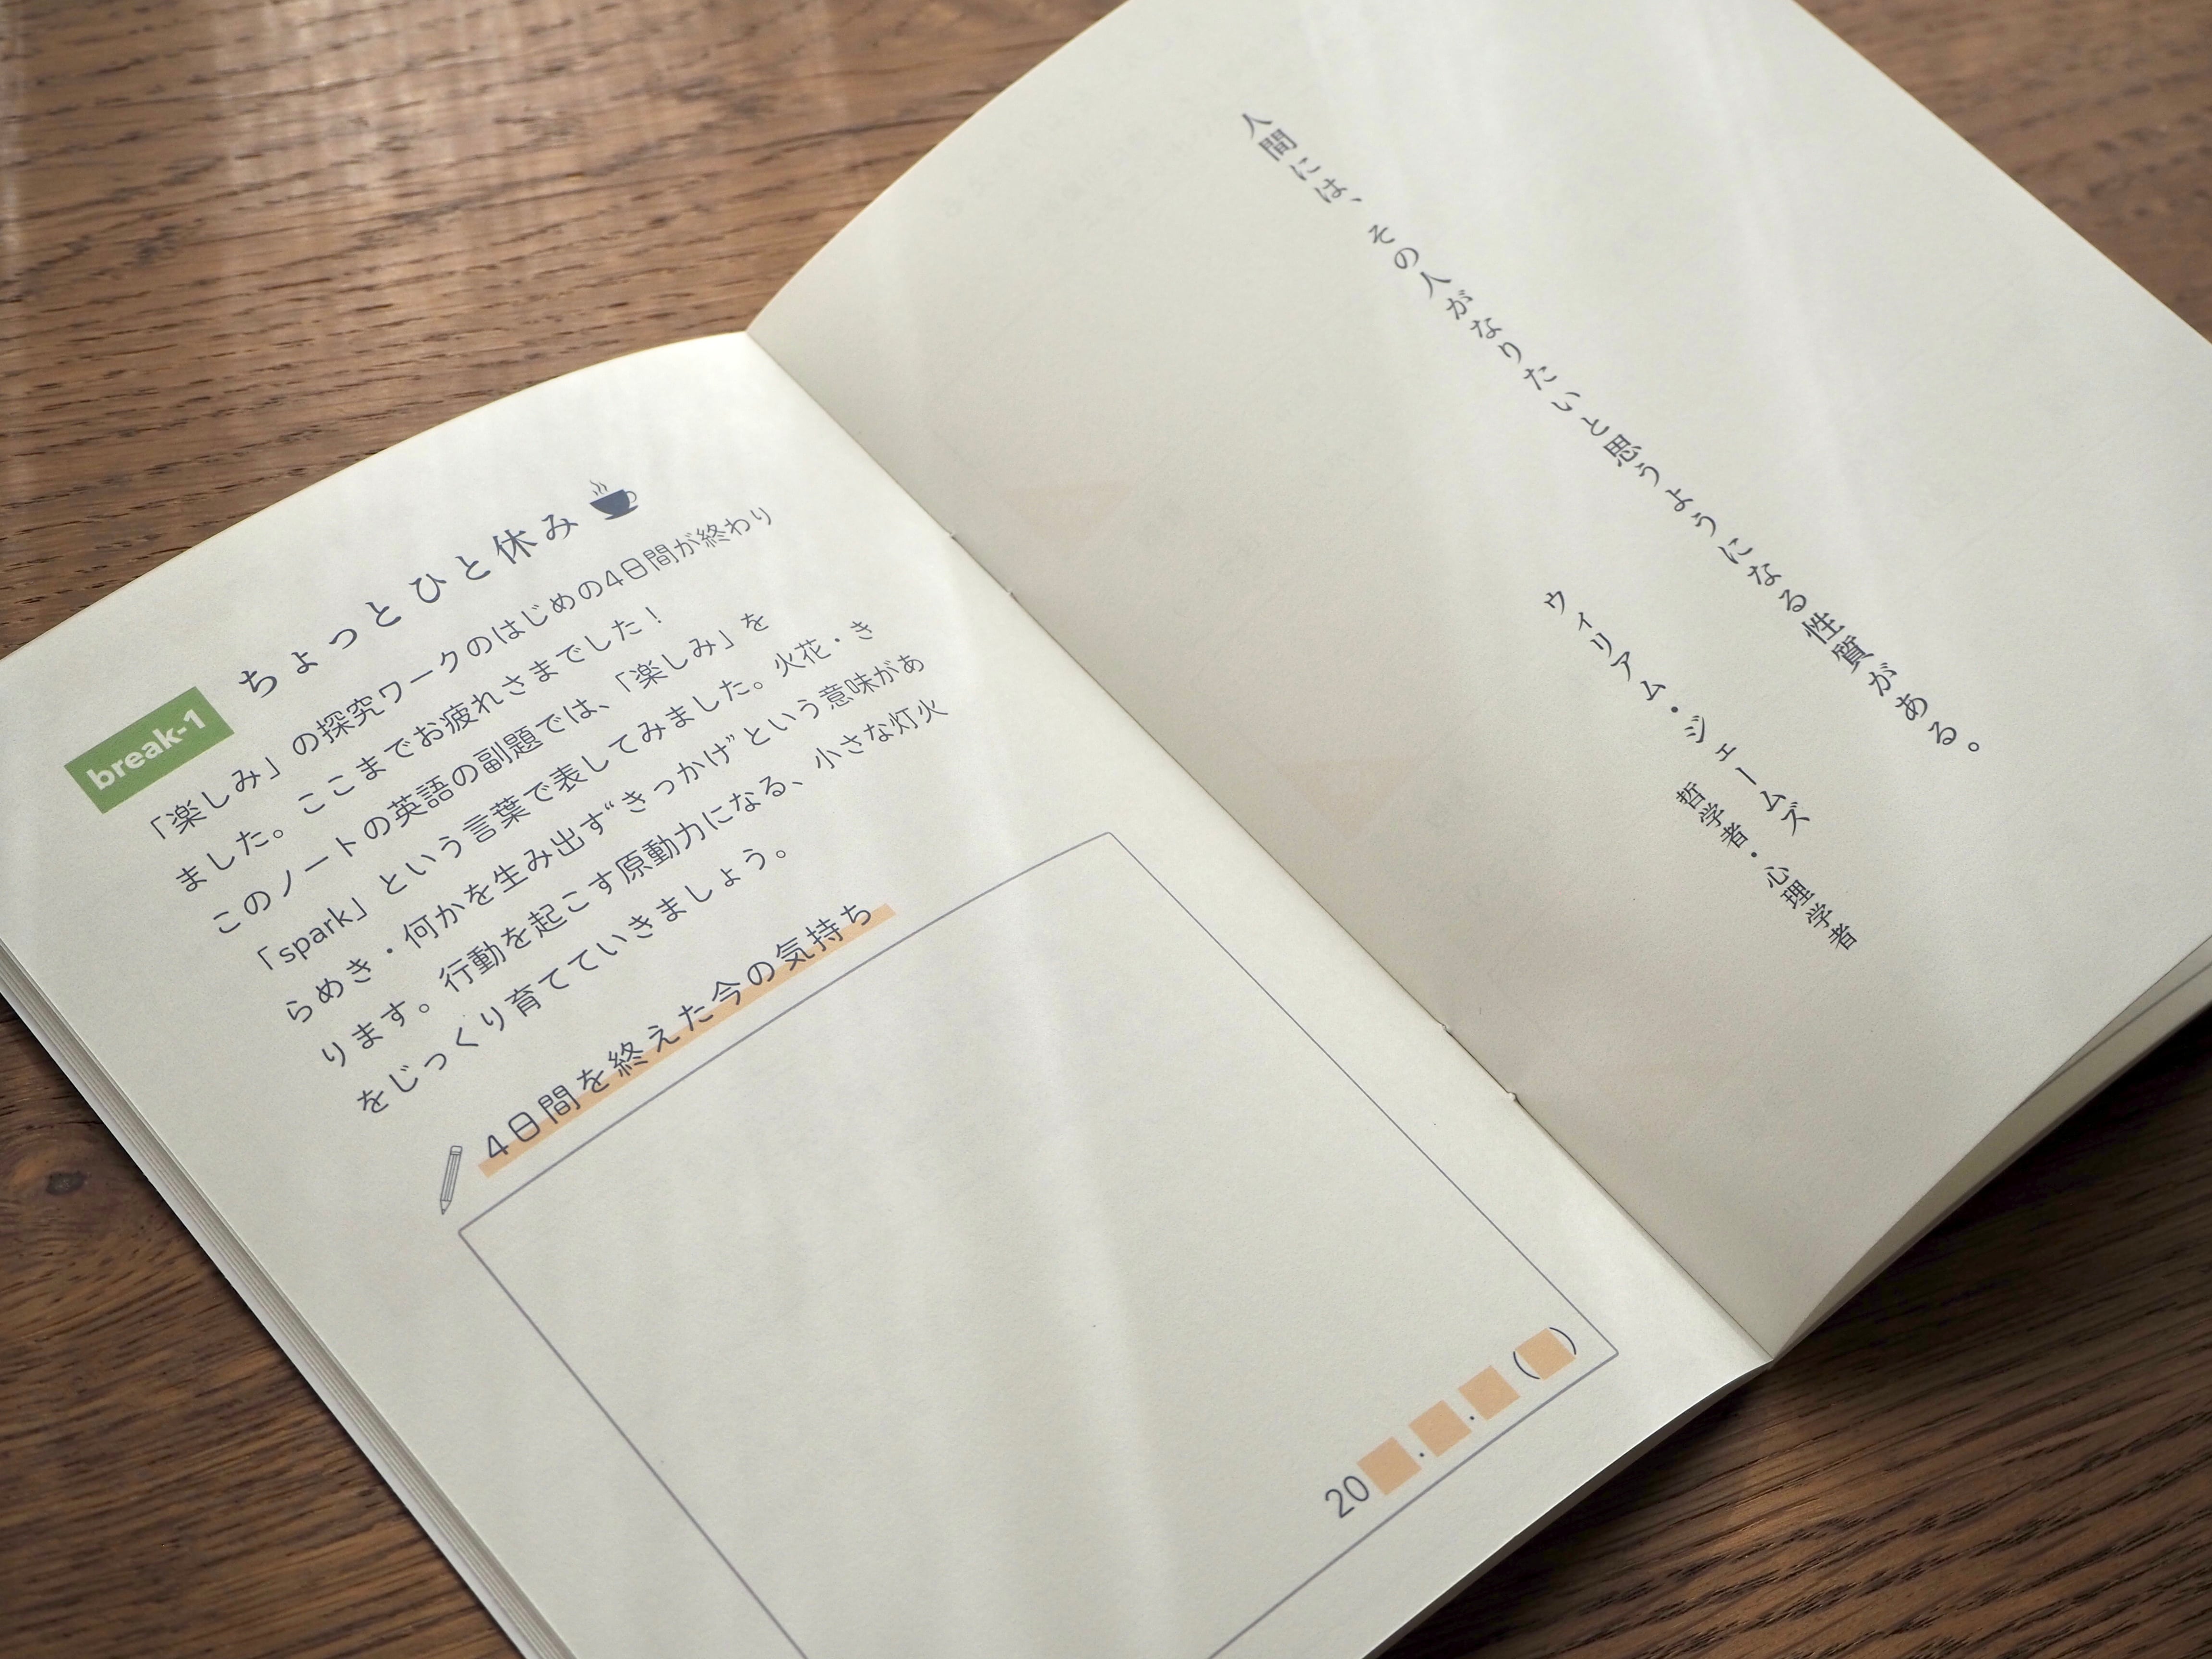 break-1
ちょっとひと休み
「楽しみ」の探究ワークのはじめの4日間が終わり
ました。ここまでお疲れさまでした！
このノートの英語の副題では、「楽しみ」を
「spark」という言葉で表してみました。火花・き
らめき・何かを生み出す“きっかけ”という意味があ
ります。行動を起こす原動力になる、小さな灯火
をじっくり育てていきましょう。
4日間を終えた今の気持ち
20 . . ( )
人間には、その人がなりたいと思うようになる性質がある。
ウィリアム・ジェームズ
哲学者・心理学者